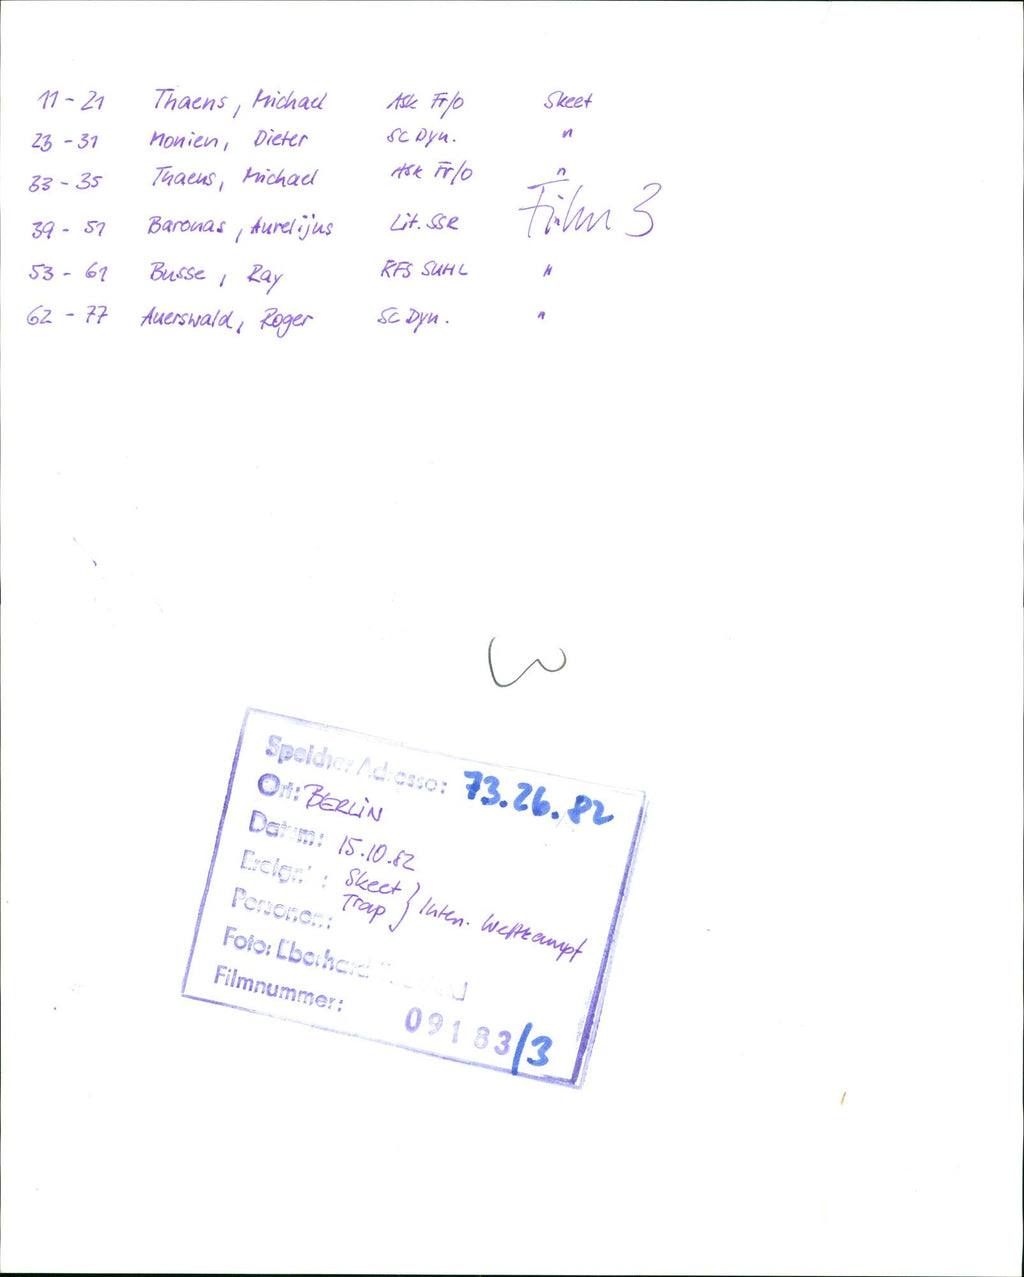 11 - 21 Thaens, Michael Ask Fr/o Skeet
23 - 31 Monien, Dieter SC Dyn. "
33 - 35 Thaens, Michael Ask Fr/o "
Film 3
39 - 51 Baronas, Aurelijus Lit. SSR "
53 - 61 Busse, Ray RFS SUHL "
62 - 77 Auerswald, Roger SC Dyn. "
Speicher Adresse: 73.26.82
Ort: BERLIN
Datum: 15.10.82
Ereign : Skeet } Intern. Wettkampf
Personen: Trap
Foto: Eberhard
Filmnummer: 09183/3